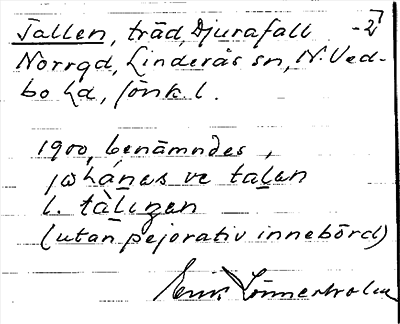 Tallen, träd, Djurafall -2
Norrgd, Linderås sn, N. Ved-
bo hd, Jönk. l.
1900, benämndes,
johánas ve talen
l. tàlızen
(utan pejorativ innebörd)